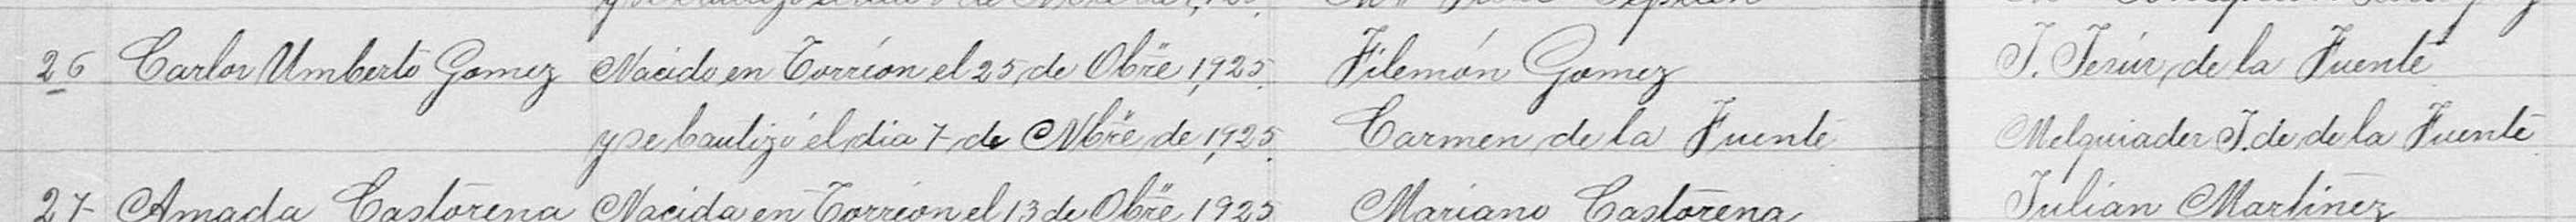 26 Carlos Umberto Gomez Nacido en Torrión el 25 de Obre 1925. Filemón Gomez J. Jesús de la Fuente
y se bautizó el dia 7 de Nbre de 1925. Carmen de la Fuente Melquiades J. de de la Fuente
27 Amada Castorena Nacida en Torrion el 13 de Obre 1925 Mariano Castorena Julian Martinez